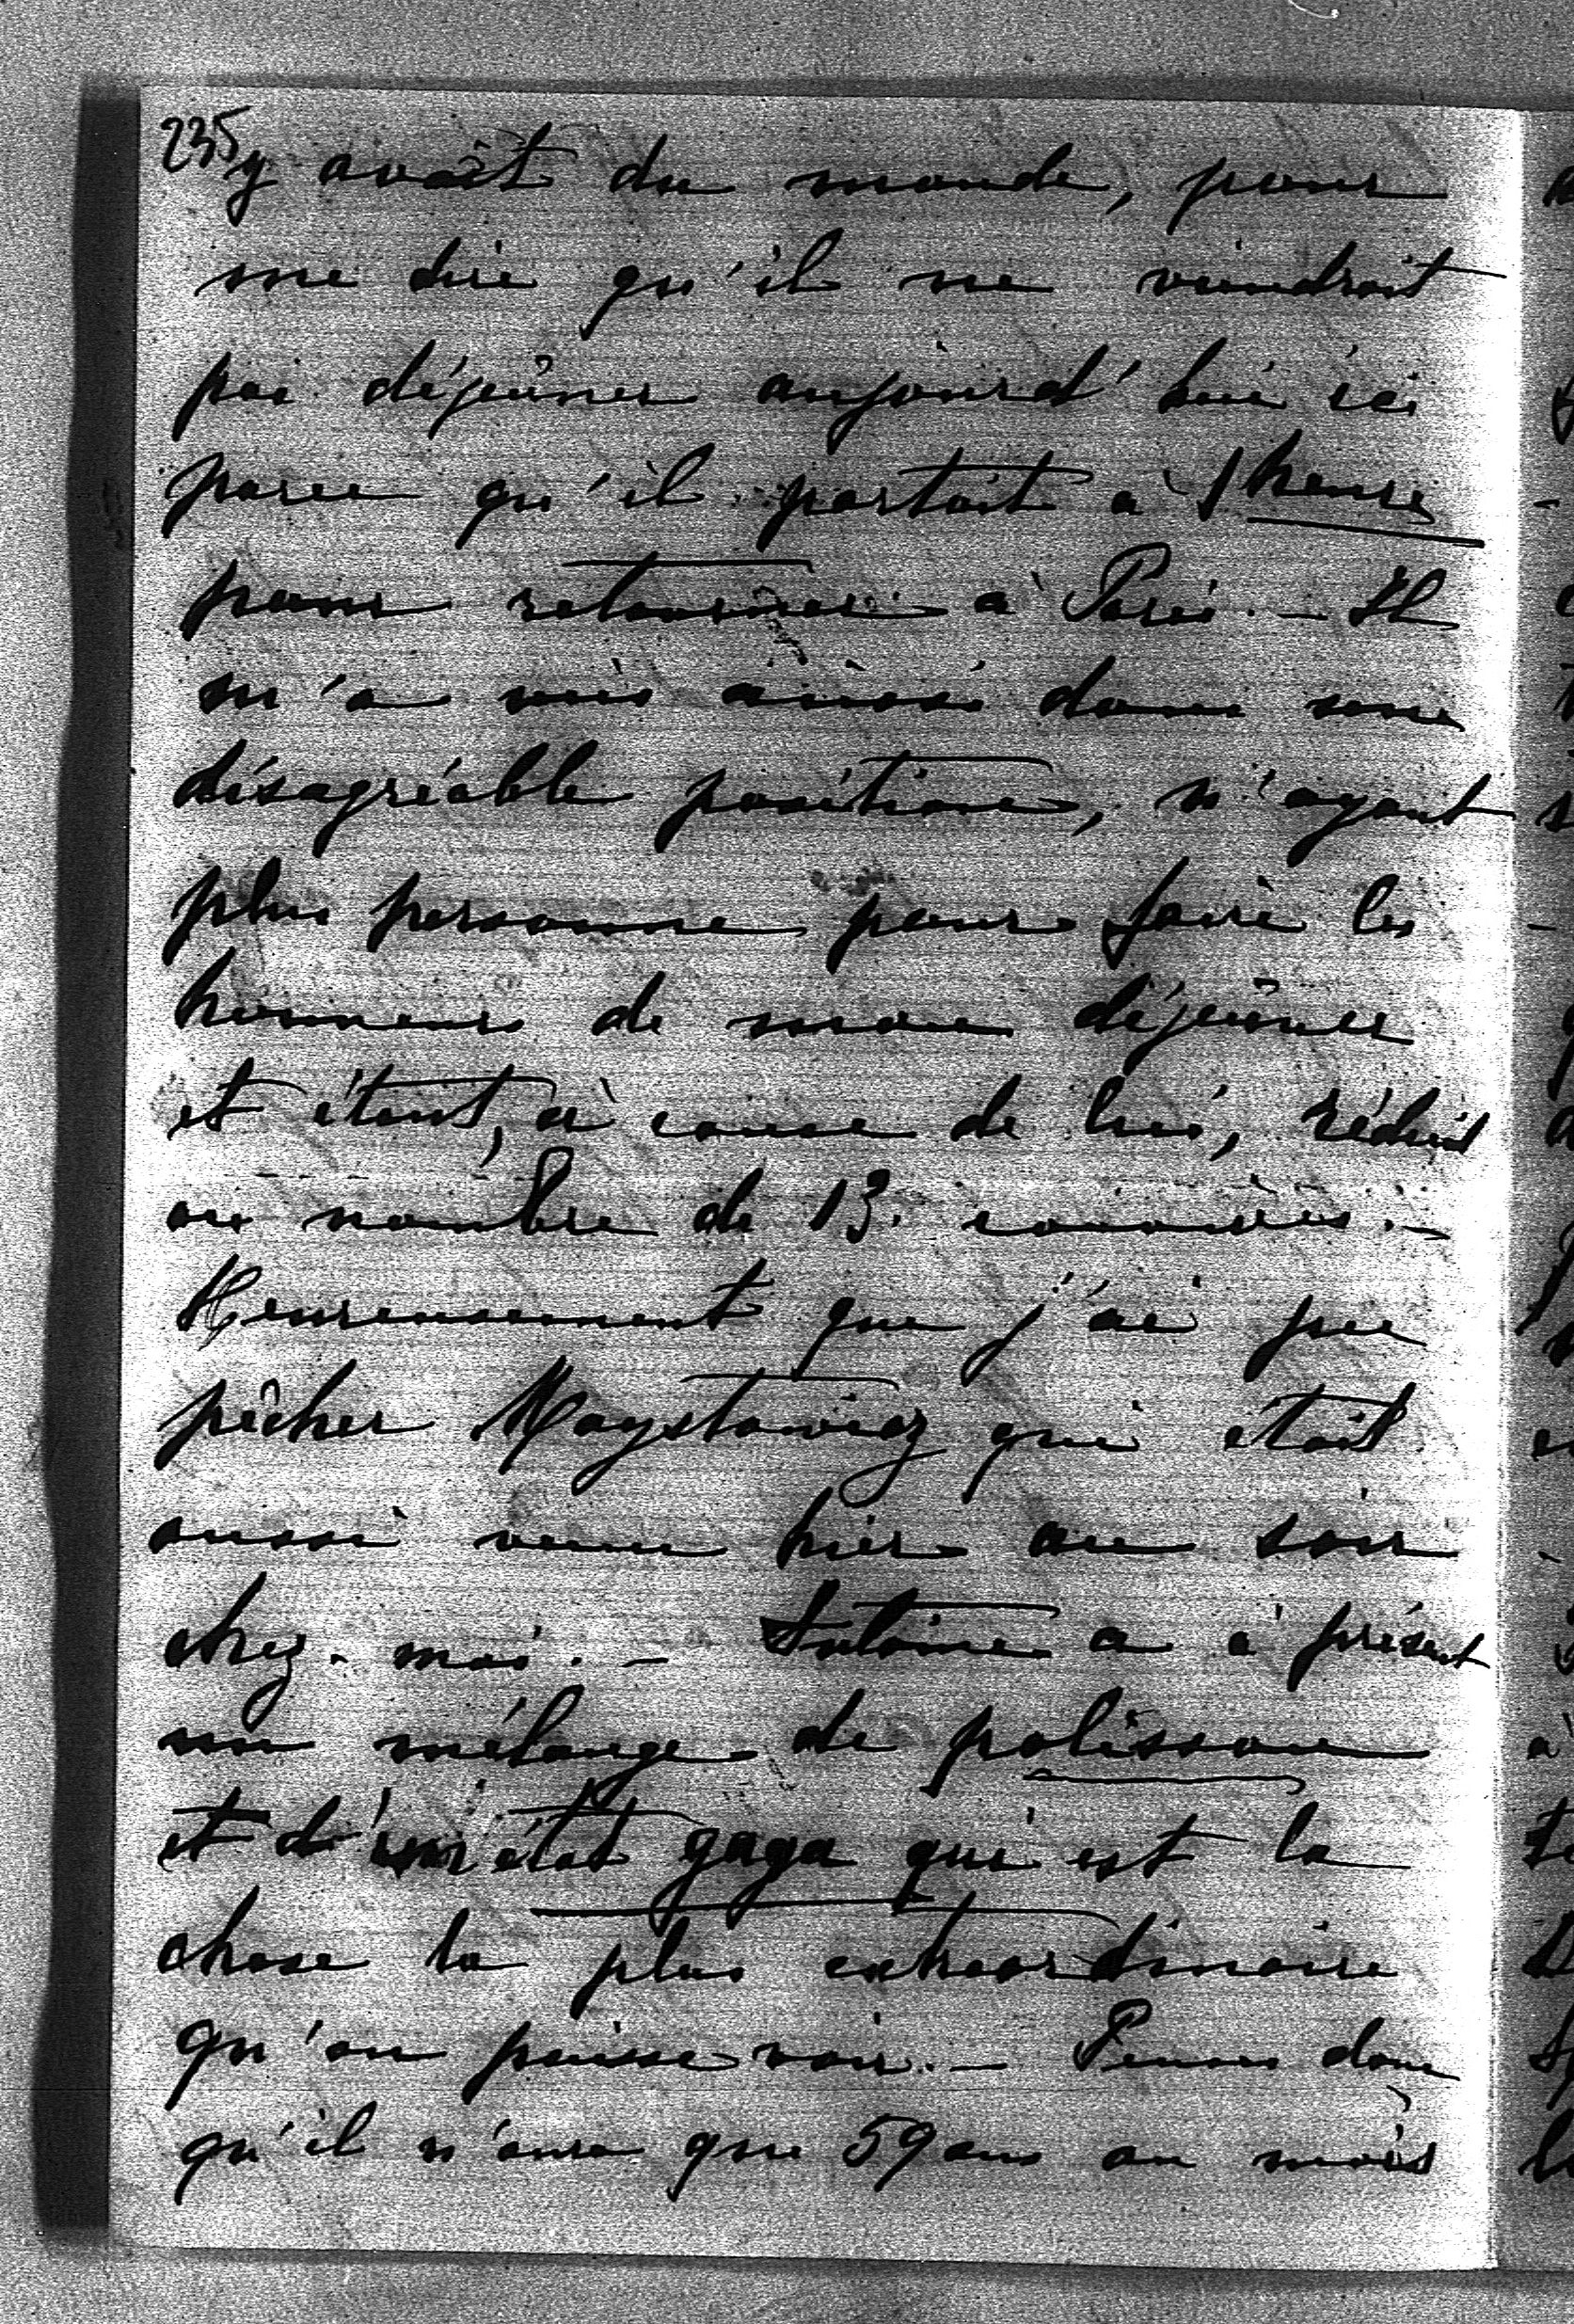 235
y avait du monde, pour
me dire qu'il ne viendrait
pas déjeûner aujourd'hui ici
parce qu'il partait à 1 heure
pour retourner à Paris. – Il
m'a mis ainsi dans une
désagréable position, n'ayant
plus personne pour faire les
honneurs de mon déjeûner
et étant, à cause de lui, réduit
au nombre de 13. convives. –
Heureusement que j'ai pu
pêcher qui était
aussi venu hier au soir
chez-moi. – Antoine a à présent
un mélange de polisson
et d'un état gaga qui est la
chose la plus extraordinaire
qu'on puisse voir. – Pensez donc
qu'il n'aura que 59 ans au mois